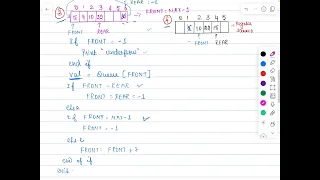 REAR = -1
FRONT = MAX-1
0 1 2 3 4 5
5 9 10 20 30
FRONT REAR
0 1 2 3 4 5
FRONT REAR
If FRONT = -1
Print "underflow"
end if
val = Queue [FRONT]
If FRONT = REAR
FRONT = REAR = -1
else
if FRONT = MAX-1
FRONT = -1
else
FRONT = FRONT + 1
end of if